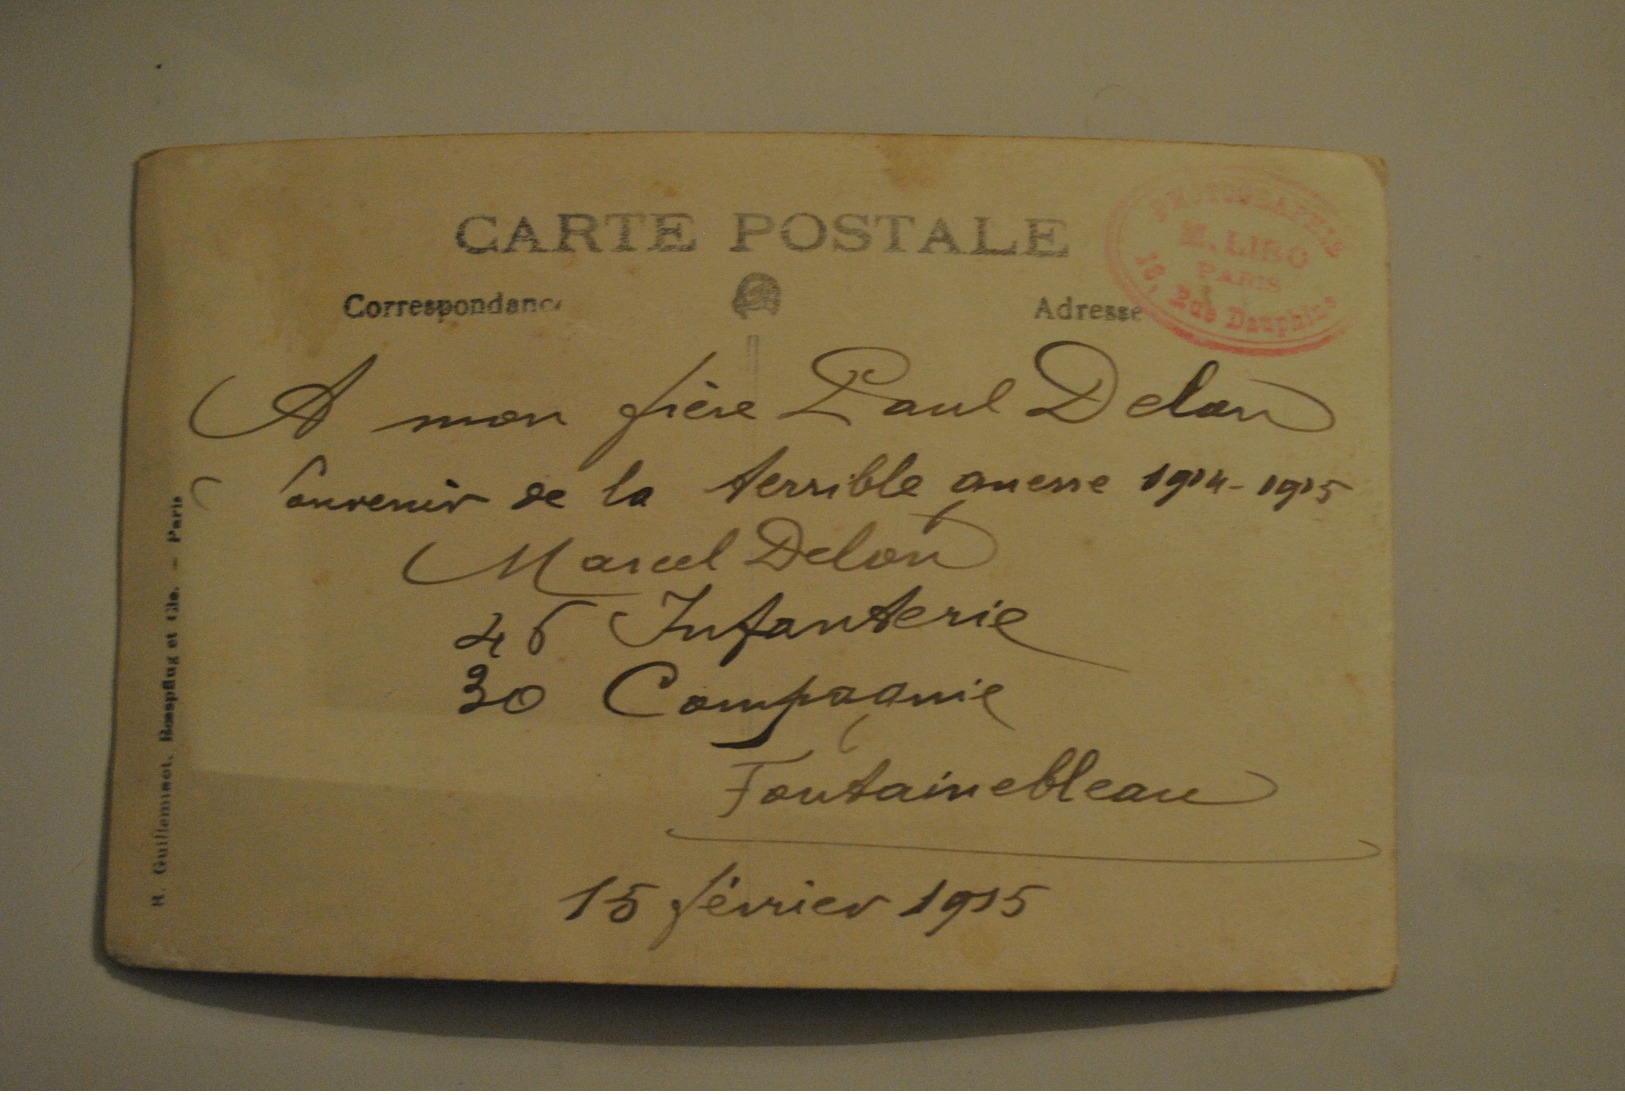 CARTE POSTALE
PHOTOGRAPHIE
M. LIBO
PARIS
18, Rue Dauphine
Correspondance
Adresse
A mon frère Paul Delon
Souvenir de la terrible guerre 1914-1915
Marcel Delon
46 Infanterie
30 Compagnie
Fontainebleau
15 février 1915
H. Guilleminot, Bœspflug et Cie. — Paris